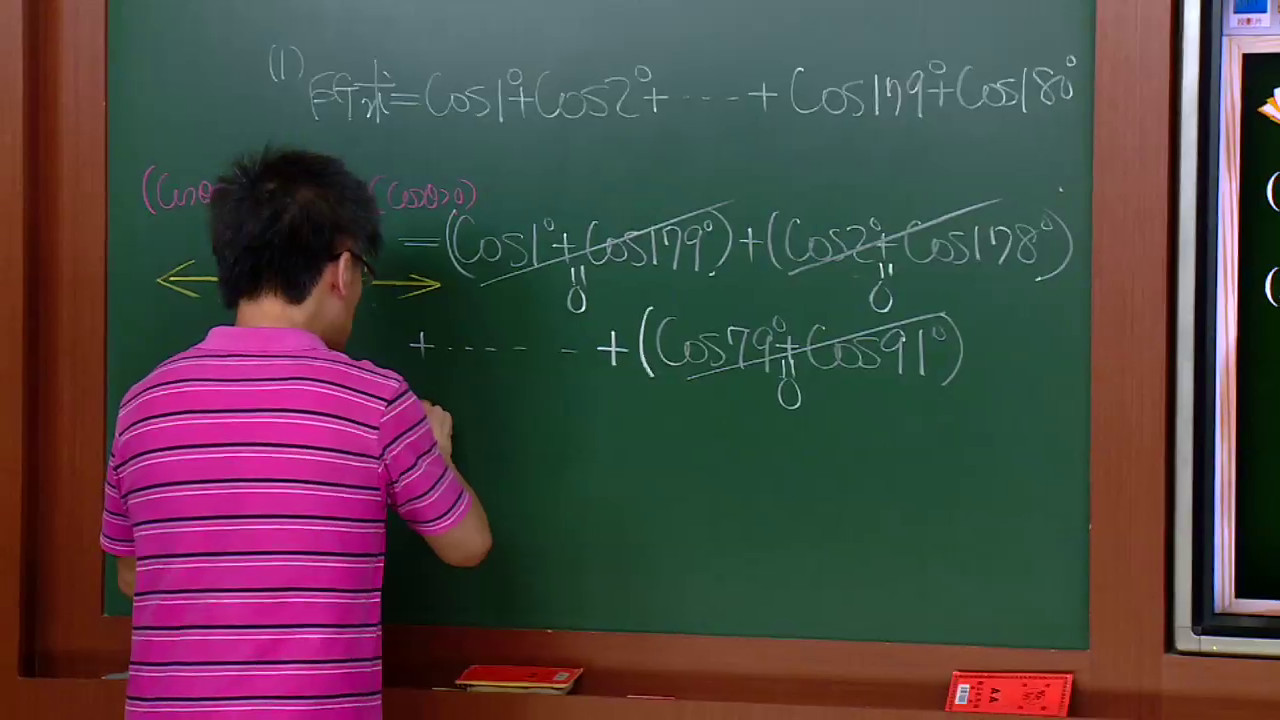 (1) 所求=Cos1°+Cos2°+ ---- + Cos179°+Cos180°
(Cosθ (Cosθ>0)
=(Cos1°+Cos179°)+(Cos2°+Cos178°)
=0 =0
+ ----- - +(Cos79°+Cos91°)
=0
投影片
AA